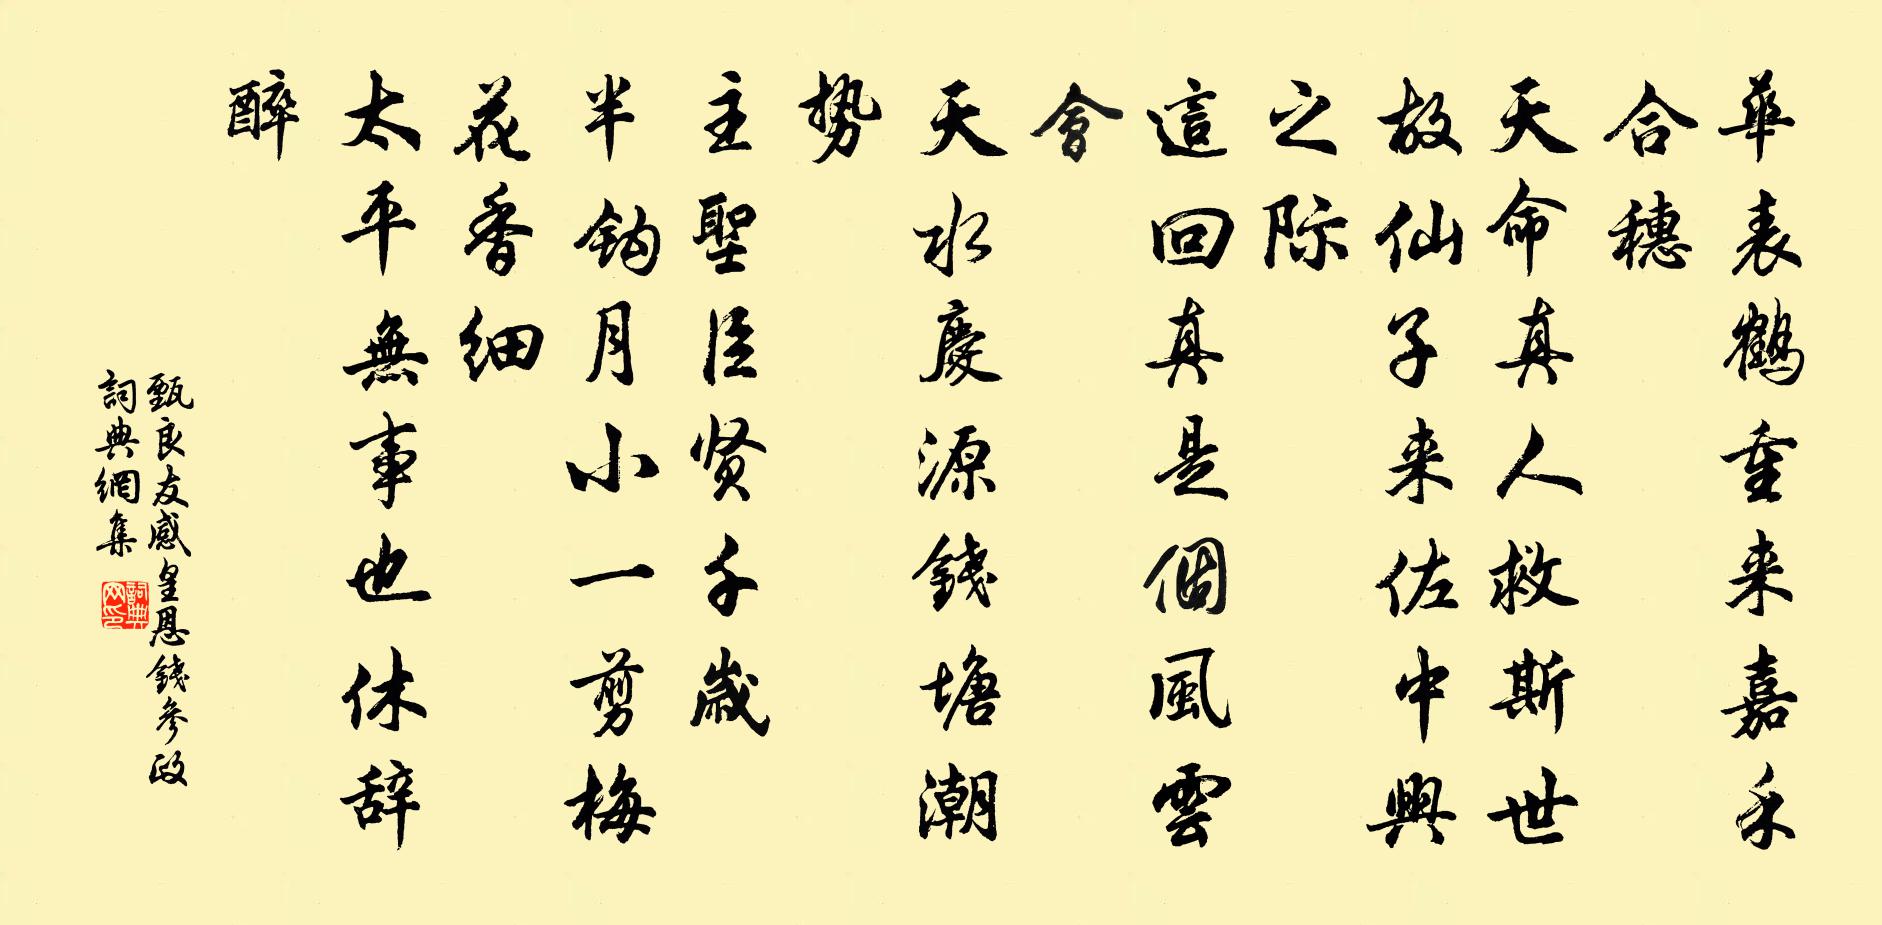 華表鶴重来嘉禾
合穗
天命真人救斯世
故仙子来佐中興
之际
這回真是個風雲
會
天水慶源錢塘潮
势
主聖臣贤千歳
半鈎月小一剪梅
花香细
太平無事也休辞
醉
甄良友感皇恩錢參政
詞典網集
詞典网印